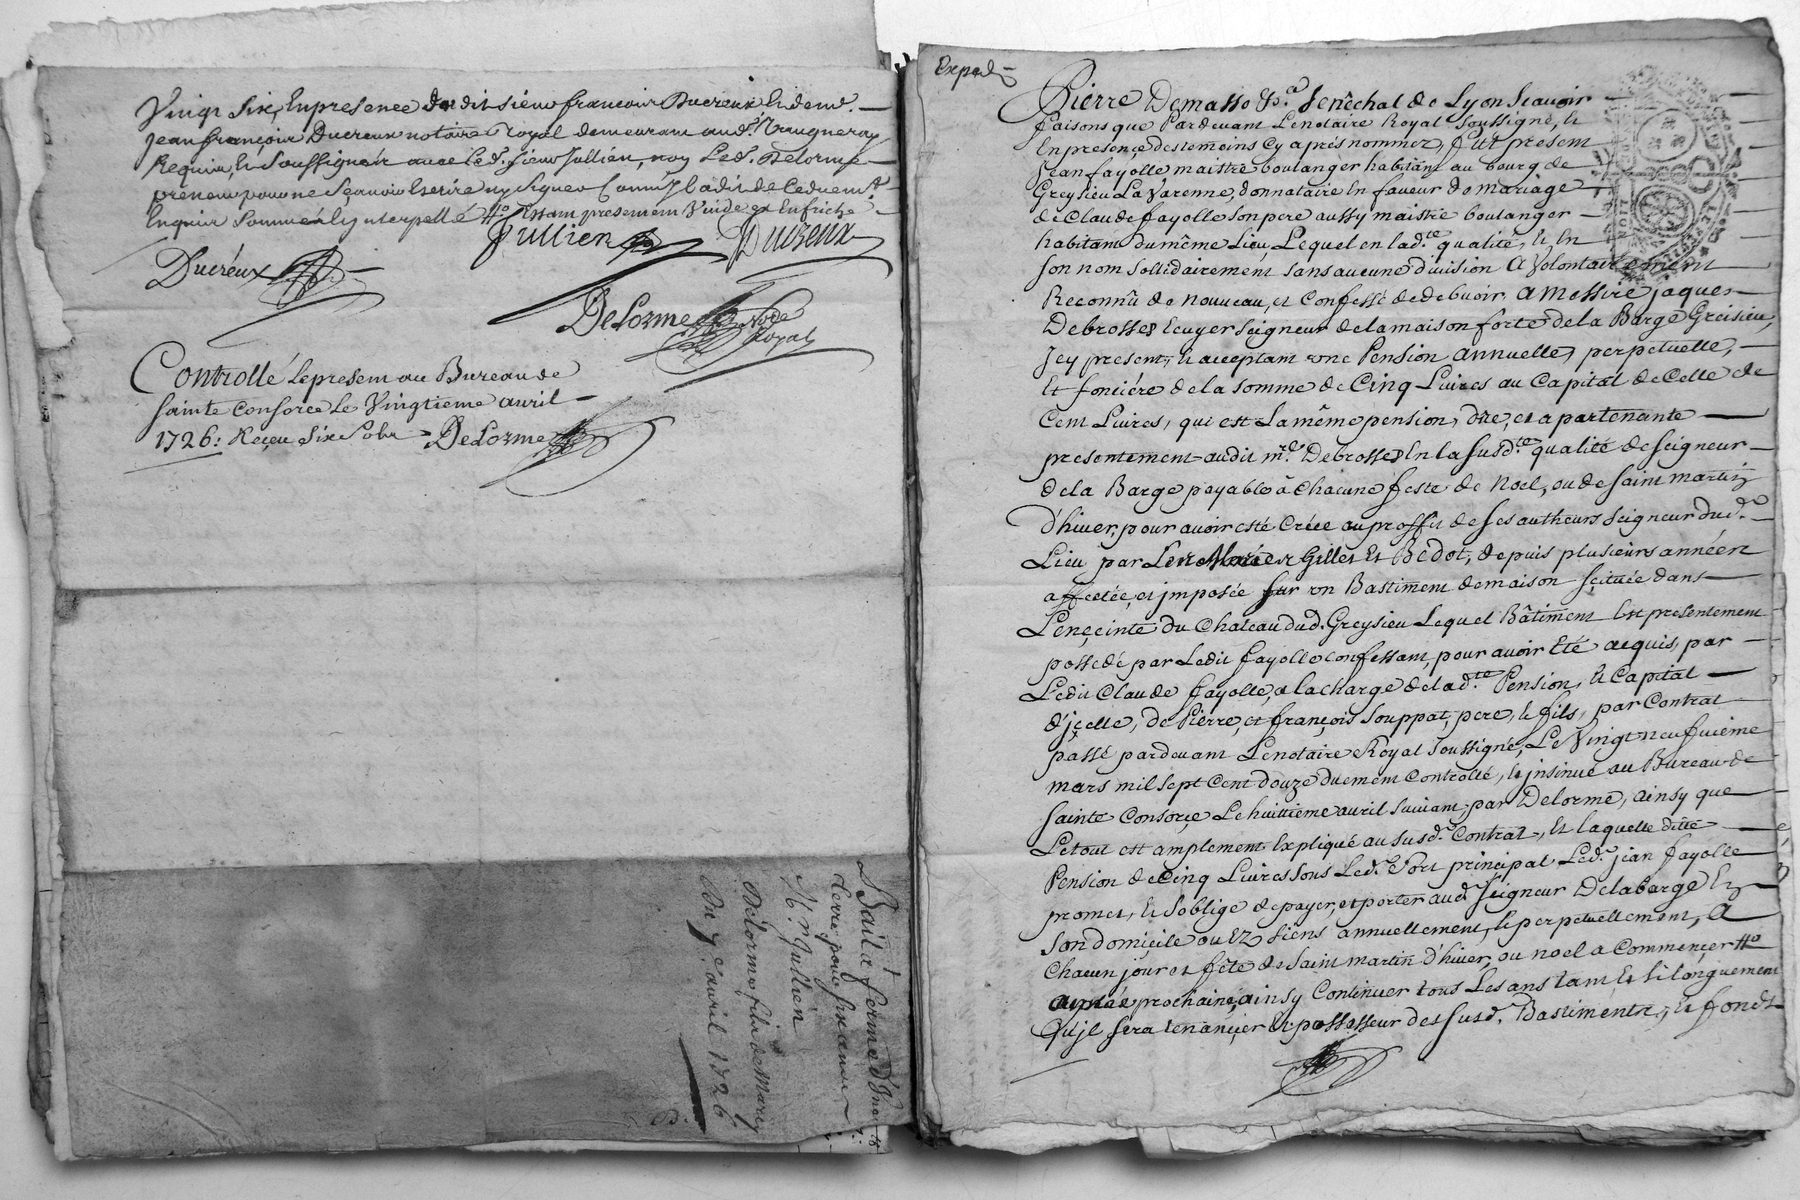 Vingt six, En presence dudit sieur françois Ducreux Et de mr.
Jean françois Ducreux notaire Royal demeurant aud. Vaugneray
Requis, Et Soussignés avec led. sieur Jullien, non Led. Delorme
preneur pour ne sçavoir Escrire ny signer comme il a dit de ce duement
Enquis sommé et interpellé Estant presentem. Vuide et En friche
Jullien Ducreux
Ducreux
Delorme No.re Royal
Controllé le present au Bureau de
Sainte Consorce Le Vingtieme avril
1726: Reçeu Six Sols Delorme
Bail a ferme d'une
terre pour six années
Mr. Jullien
Delorme fils de Marc
Du 7e. avril 1726
Exped.
Pierre Demasso &c.a Senêchal de Lyon Sçavoir
faisons que Pardevant Le notaire Royal Soussigné, et
En presençe des temoins Cy aprés nommez, fut present
Jean fayolle maistre boulanger habitant au bourg de
Greysieu La Varenne, donnataire En faveur de mariage
de Claude fayolle son pere aussy maistre boulanger
habitant du même Lieu, Lequel en lad.te qualité, et En
son nom sollidairement sans aucune division a Volontairement
Reconnû de nouveau, et Confessé de debvoir, a Messire jaques
Debrosses Ecuyer seigneur de la maison forte de la Barge Greisieu,
Jcy present, et acceptant une Pension annuelle, perpetuelle,
et fonciére de la somme de Cinq Livres au Capital de Celle de
Cent Livres, qui est La même pension, düe, et apartenante
presentement audit mre. Debrosses En la susd.te qualité de seigneur
de la Barge payable â Chacune feste de Noel, ou de Saint martin
d'hiver, pour avoir esté Créée au proffit de ses autheurs seigneur dud.
Lieu par Les Gilles Et Bédot, depuis plusieurs années
affectée, et jmposée sur un Bastiment de maison scituée dans
L'ençeinte du Chateau dud. Greysieu Lequel Bâtiment Est presentement
possedé par Ledit fayolle confessant, pour avoir Eté acquis, par
Ledit Claude fayolle, a la charge de lad.te Pension, et Capital
d'jçelle, de Pierre, et françois Souppat, pere, et fils, par Contrat
passé pardevant Le notaire Royal Soussigné, Le Vingt neufvieme
mars mil sept Cent douze duement Controllé, et jnsinué au Bureau de
Sainte Consorçe Le huittieme avril suivant, par Delorme, ainsy que
Le tout est amplement Expliqué au susd. Contrat, Et laquelle ditte
Pension de Cinq Livres sous Led. Sort principal Led. jean fayolle
promet, et s'oblige de payer, et porter aud. Seigneur De la barge En
son domiçile ou Ez siens annuellement, et perpetuellement, a
Chacun jour et fête de Saint martin d'hiver, ou noel a Commençer
prochaine, ainsy Continuer tous Les ans tant Et si longuement
Qu'jl sera tenançier Et possesseur des susd. Bastiments, et fonds